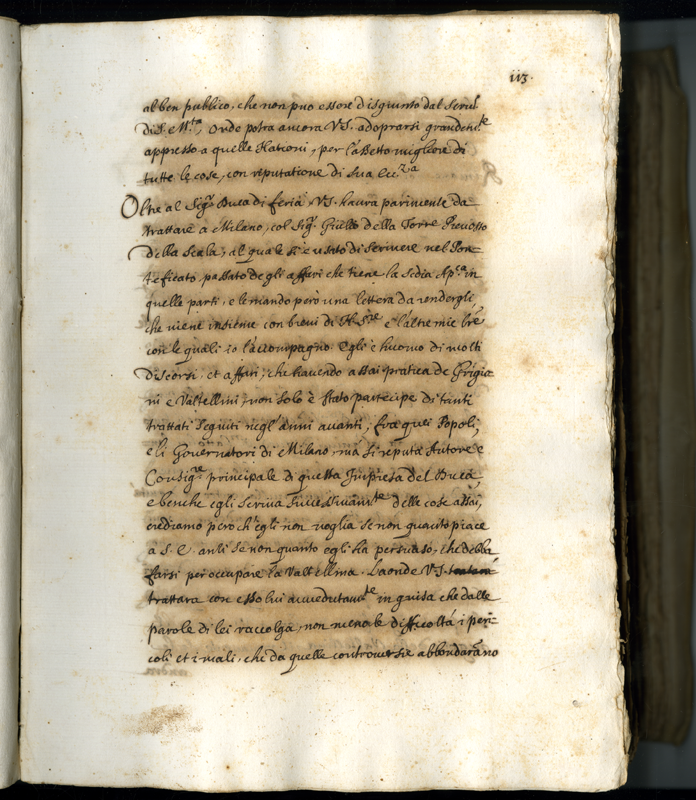 113.
al ben publico, che non puo essere disgiunto dal seru.o
di S. M.ta, onde potra ancora V.S. adoprarsi grandem.te
appresso a quelle Nationi, per l'assetto migliore di
tutte le cose, con riputatione di sua ecc.za
Oltre al Sig.r Duca di feria V.S. haura parimente da
trattare a Milano, col Sig.r Giulio della Torre Preuosto
della Scala, al quale si e usato di scriuere nel Pon=
teficato passato degli affari che tiene la Sedia Ap.ca in
quelle parti, e le mando però una lettera da rendergli,
che viene insieme con breui di N. S.re e l'altre mie lrē
con le quali io l'accompagno. Egli e huomo di molti
discorsi, et affari, che hauendo assai pratica de Grigia=
ni e Valtellini, non solo è stato partecipe di tanti
trattati seguiti negl'anni auanti, fra quei Popoli,
e li Gouernatori di Milano, ma si reputa Autore e
Consig.re principale di questa Impresa del Duca,
e benche egli scriua successiuam.te delle cose assai,
crediamo però ch'egli non voglia se non quanto piace
a S. E. anzi se non quanto egli ha persuaso, che debba
farsi per occupare la Valtellina. Laonde V.S.
trattara con esso lui auuedutam.te in guisa che dalle
parole di lei raccolga, non meno le difficoltà i peri=
coli et i mali, che da quelle controuersie abbondaranno